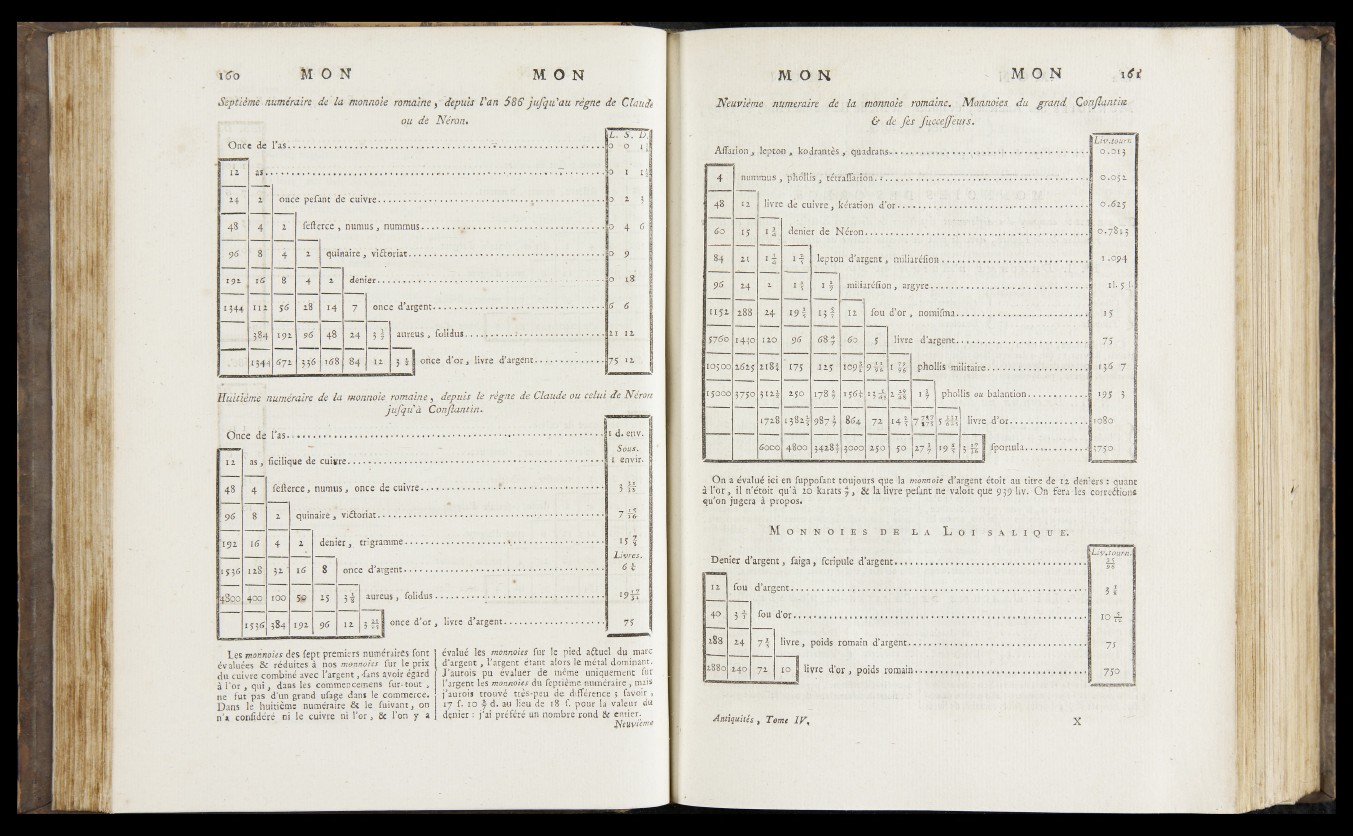 160 MON MON
Septième numéraire de la monnoie romaine, depuis l'an 586 jusqu'au règne de Claude
ou de Néron.
L. S. D.
Once de l'as 0 0
12 as 0 1
24 2 once pesant de cuivre 0 2 3
48 4 2 sesterce, numus, nummus 0 4 6
96 8 4 2 quinaire, victoriat 0 9
192 16 8 4 2 denier 0 18
1344 112 56 28 14 7 once d'argent 6 6
384 192 96 48 24 3 3/7 aureus, solidus 21 12
1344 672 336 168 84 12 3 1/2 once d'or, livre d'argent 75 12
Huitième numéraire de la monnoie romaine, depuis le règne de Claude ou celui de Néron
jusqu'à Constantin.
Once de l'as 1 d. env.
Sous.
12 as, sicilique de cuivre 1 envir.
48 4 sesterce, numus, once de cuivre 3
96 8 2 quinaire, victoriat 7
192 16 4 2 denier, trigramme 15
Livres.
1536 128 32 16 8 once d'argent 6 1/4
4800 400 100 50 25 3 1/8 aureus, solidus 19
1536 384 192 96 12 3 once d'or, livre d'argent 75
Les monnoies des sept premiers numéraires sont
évaluées & réduites à nos monnoies sur le prix
du cuivre combiné avec l'argent, sans avoir égard
à l'or, qui, dans les commencemens sur-tout,
ne fut pas d'un grand usage dans le commerce.
Dans le huitième numéraire & le suivant, on
n'a considéré ni le cuivre ni l'or, & l'on y a
évalué les monnoies sur le pied actuel du marc
d'argent, l'argent étant alors le métal dominant.
J'aurois pu évaluer de même uniquement sur
l'argent les monnoies du septième numéraire, mais
j'aurois trouvé très-peu de différence; savoir,
17 s. 10 d. au lieu de 18 s. pour la valeur du
denier: j'ai préféré un nombre rond & entier.
Neuvième
MON MON 161
Neuvième numéraire de la monnoie romaine. Monnoies du grand Constantin
& de ses successeurs.
Liv. tourn.
Assarion, lepton, kodrantès, quadrans 0.013
4 nummus, phollis, tétrassarion 0.052
48 12 livre de cuivre, kération d'or 0.625
60 15 1 1/4 denier de Néron 0.7813
84 21 1 lepton d'argent, miliarésion 1.094
96 24 2 1 1 miliarésion, argyre 1 l. 5 s.
1152 288 24 19 13 12 sou d'or, nomisma 15
5760 1440 120 96 68 4/7 60 5 livre d'argent 75
10500 2625 218 175 125 109 9 1 phollis militaire 136 7
15000 3750 312 250 178 156 13 2 1 phollis ou balantion 195 3
1728 1382 987 864 72 14 7 5 livre d'or 1080
6000 4800 3428 3000 250 50 27 19 3 sportula 3750
On a évalué ici en supposant toujours que la monnoie d'argent étoit au titre de 12 deniers: quant
à l'or, il n'étoit qu'à 20 karats, & la livre pesant ne valoit que 939 liv. On fera les corrections
qu'on jugera à propos.
MONNOIES DE LA LOI SALIQUE.
Liv. tourn.
Denier d'argent, saiga, scripule d'argent
12 sou d'argent 3
40 3 1/3 sou d'or 10
288 24 7 livre, poids romain d'argent 75
2880 240 72 10 livre d'or, poids romain 750
Antiquités, Tome IV. X